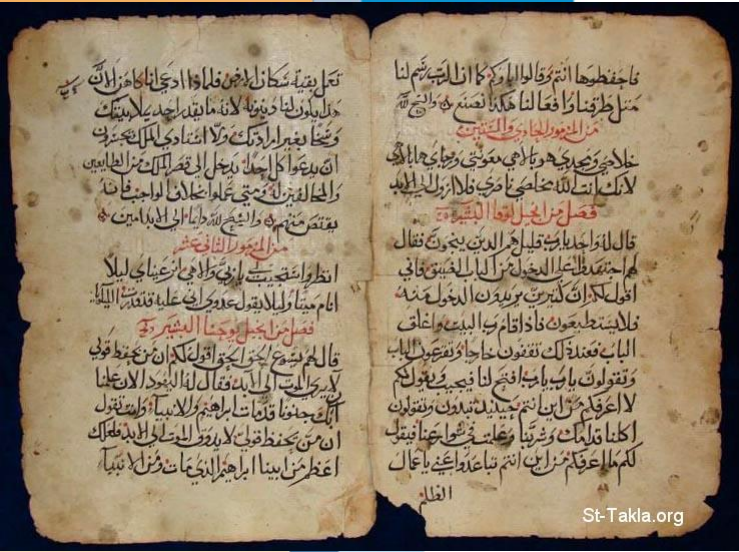 فاحفظوها انتم وقولوا اباوكم كما ان الرب رسم لنا
مثل طرقنا وافعالنا هكذا يصنع والسبح لله
من المزمور الحادي والستين
خلاصي ومجدي هو بالاهي معونتي ورجاي هو بالاهي
لانك انت الله مخلصي ناصري فلا ازول الى الابد
فصل من انجيل لوقا البشير
قال له واحد يا رب قليل هم الذين ينجون فقال
لهم اجتهدوا على الدخول من الباب الضيق فاني
اقول لكم ان كثيرين يريدون الدخول منه
فلا يستطيعون فاذا قام رب البيت واغلق
الباب فعند ذلك تقفون خارجا وتقرعون الباب
وتقولون يا رب يا رب افتح لنا فيجيب ويقول لكم
لا اعرفكم من اين انتم حينيذ تبدون وتقولون
اكلنا قدامك وشربنا وعلمت في شوارعنا فيقول
لكم ما اعرفكم من اين انتم تباعدوا عني يا عمال
الظلم
بقية سكان الارض فلماذا ادعى انا
هذا يكون لنا دينونة لانه ما يقدر احد يملا بيتك
بغير ارادتك ولا
ان يدعوا كل احد يدخل الى قصر الملك من الطايعين
والمخالفين له ومتى عملوا بخلاف الواجب فانه
يقتص منهم والسبح لله دايما الى الابد امين
من المزمور الثاني عشر
انظر واستجيب لي يا ربي والاهي انر عيناي ليلا
انام ميتا وليلا يقول عدوي اني عليه قد قدرت الليلويا
فصل من انجيل يوحنا البشير
قال لهم يسوع الحق الحق اقول لكم ان من يحفظ قولي
لا يرى الموت الى الابد فقال له اليهود الان علمنا
انك جنونا قد مات ابراهيم والانبيا وانت تقول
ان من يحفظ قولي لا يذوق الموت الى الابد فلعلك
اعظم من ابينا ابراهيم الذي مات ومن الانبيا
St-Takla.org